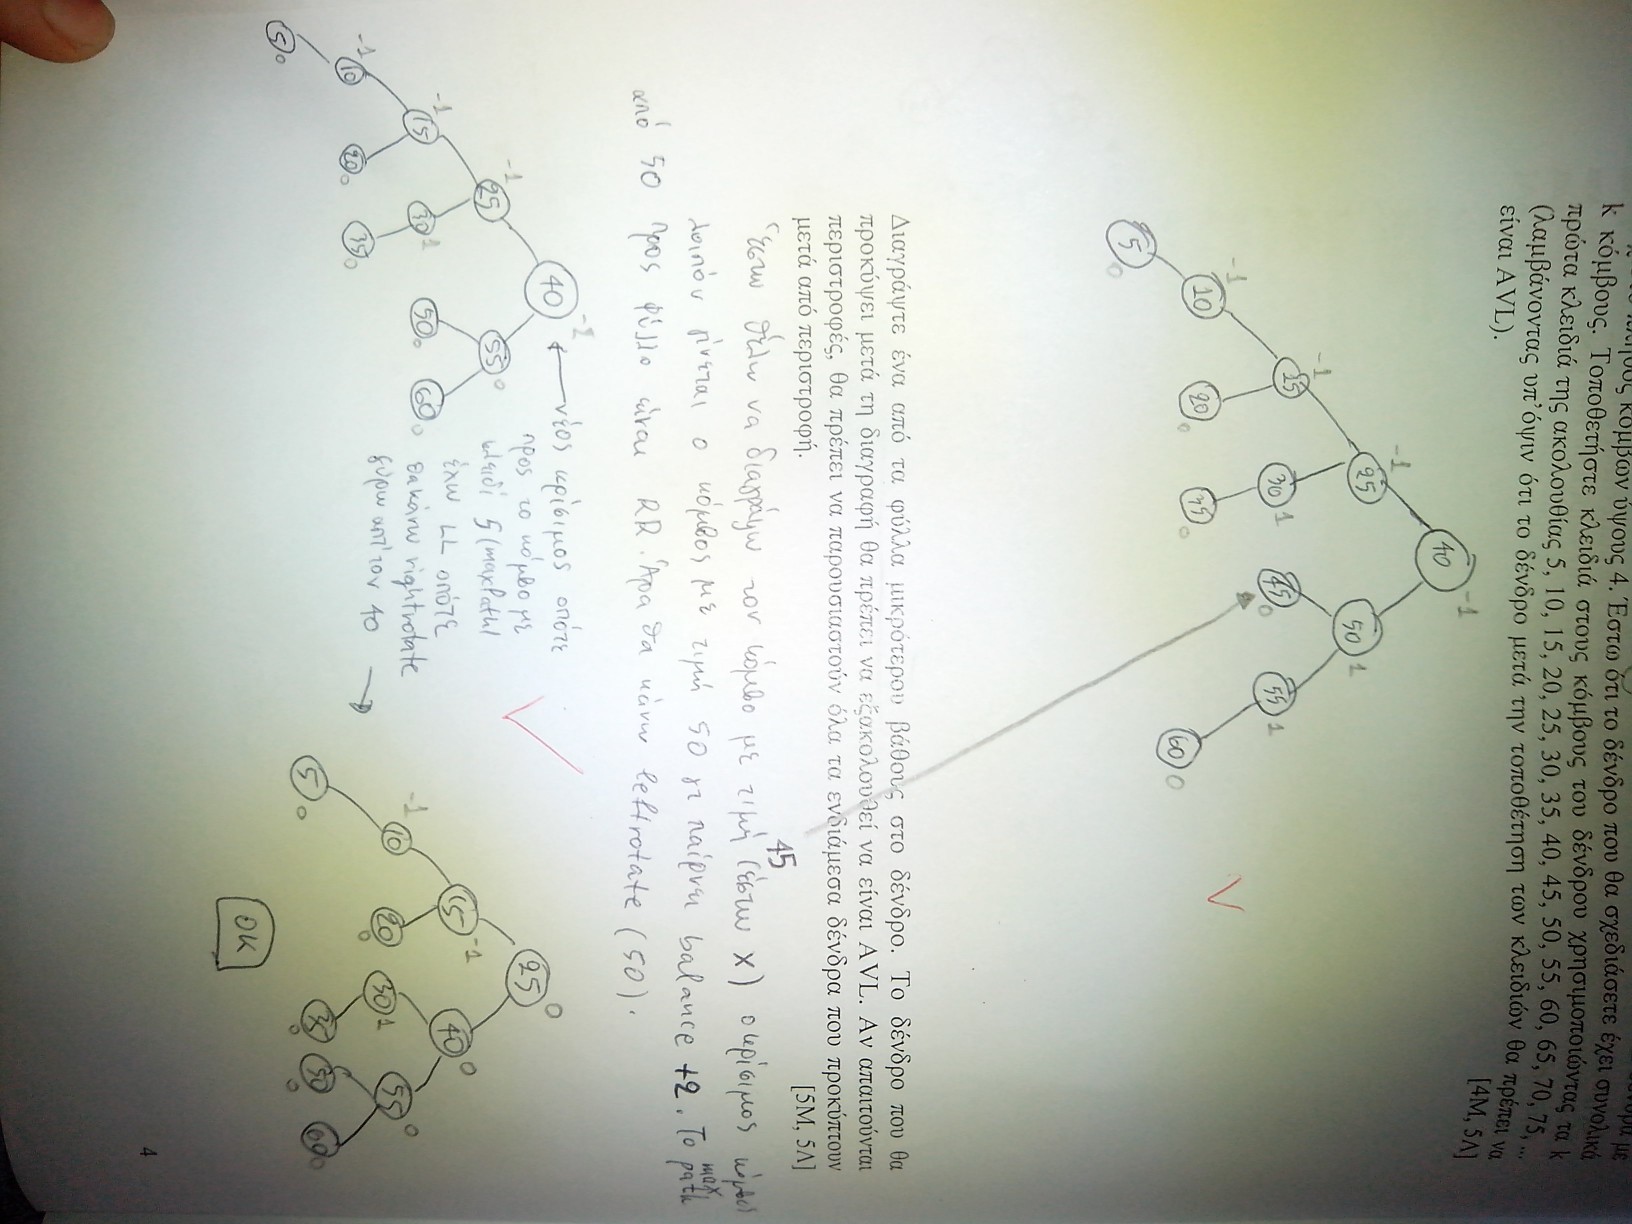 πλήθος κόμβων ύψους 4. Έστω ότι το δένδρο που θα σχεδιάσετε έχει συνολικά
k κόμβους. Τοποθετήστε κλειδιά στους κόμβους του δένδρου χρησιμοποιώντας τα k
πρώτα κλειδιά της ακολουθίας 5, 10, 15, 20, 25, 30, 35, 40, 45, 50, 55, 60, 65, 70, 75, ...
(λαμβάνοντας υπ'όψιν ότι το δένδρο μετά την τοποθέτηση των κλειδιών θα πρέπει να
είναι AVL).
[4Μ, 5Λ]
40 -1
-1 25 50 1
-1 15 30 1 45 0 55 1
-1 10 20 0 35 0 60 0
5 0
Διαγράψτε ένα από τα φύλλα μικρότερου βάθους στο δένδρο. Το δένδρο που θα
προκύψει μετά τη διαγραφή θα πρέπει να εξακολουθεί να είναι AVL. Αν απαιτούνται
περιστροφές, θα πρέπει να παρουσιαστούν όλα τα ενδιάμεσα δένδρα που προκύπτουν
μετά από περιστροφή. [5Μ, 5Λ]
45
Έστω θέλω να διαγράψω τον κόμβο με τιμή (έστω x) ο κρίσιμος κόμβος
λοιπόν γίνεται ο κόμβος με τιμή 50 γτ παίρνει balance +2. Το max path
από 50 προς φύλλο είναι RR. Άρα θα κάνω leftrotate (50).
40 -2 νέος κρίσιμος οπότε
προς το κόμβο με
κλειδί 5 (maxPath)
έχω LL οπότε
θα κάνω rightrotate
γύρω απ' τον 40
-1 25 55 0
-1 15 30 1 50 0 60 0
-1 10 20 0 35 0
5 0
25 0
15 -1 40 0
-1 10 20 0 30 1 55 0
5 0 35 0 50 0 60 0
OK
4